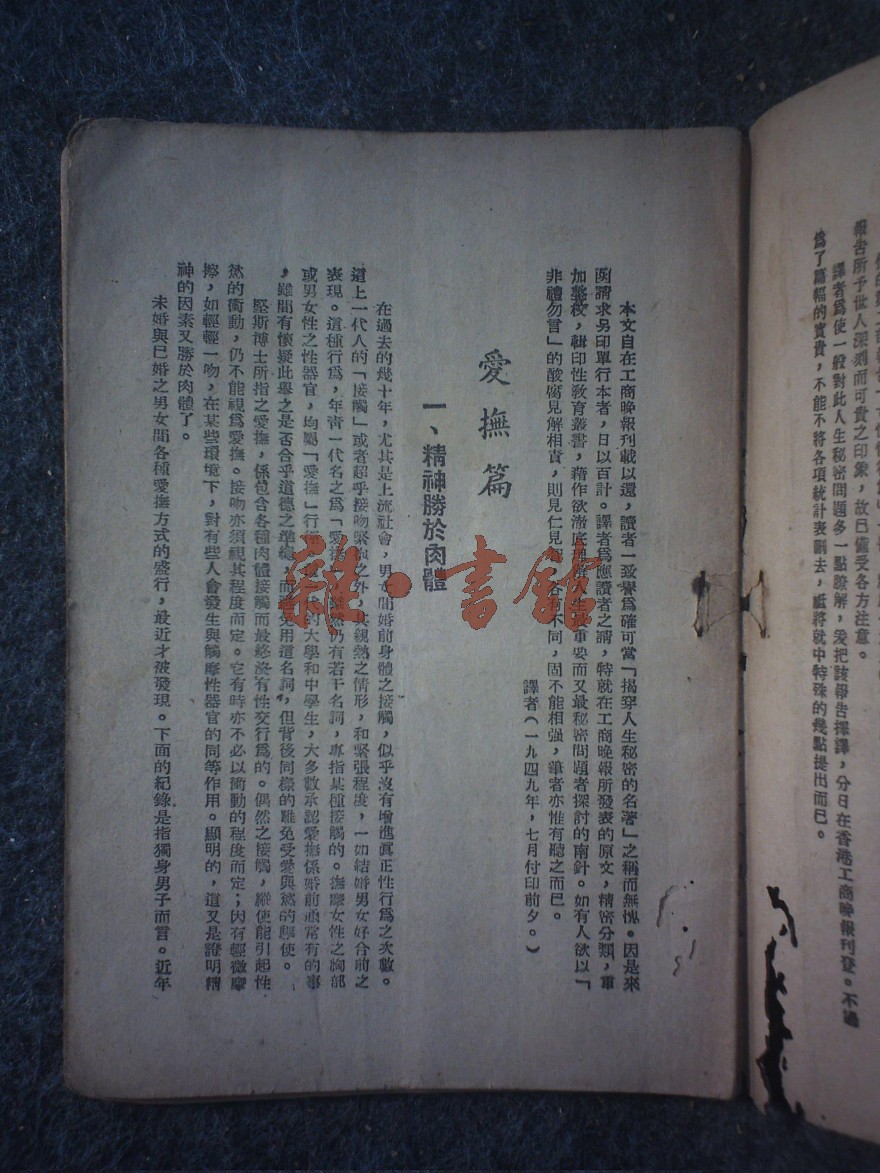 報告所予世人深刻而可貴之印象，故已備受各方注意。
譯者爲使一般對此人生秘密問題多一點瞭解，爰把該報告擇譯，分日在香港工商晚報刊登。不過
爲了篇幅的寶貴，不能不將各項統計表刪去，祗將就中特殊的幾點提出而已。
本文自在工商晚報刊載以還，讀者一致譽爲確可當「揭穿人生秘密的名著」之稱而無愧。因是來
函請求另印單行本者，日以百計。譯者爲應讀者之請，特就在工商晚報所發表的原文，精密分類，重
加整校，輯印性教育叢書，藉作欲澈底理解人生最重要而又最秘密問題者探討的南針。如有人欲以「
非禮勿言」的酸腐見解相責，則見仁見智，各有不同，固不能相强，筆者亦惟有聽之而已。
譯者（一九四九年，七月付印前夕。）
愛撫篇
一、精神勝於肉體
在過去的幾十年，尤其是上流社會，男女間婚前身體之接觸，似乎沒有增進眞正性行爲之次數。
這上一代人的「接觸」或者超乎接吻緊抱之外，其親熱之情形，和緊張程度，一如結婚男女好合前之
表現。這種行爲，年青一代名之爲「愛撫」，雖然仍有若干名詞，專指某種接觸的。撫摩女性之胸部
或男女性之性器官，均屬「愛撫」行爲。的大學和中學生，大多數承認愛撫係婚前通常有的事
，雖間有懷疑此舉之是否合乎道德之準繩，而避免用這名詞，但背後同樣的難免受愛與慾的驅使。
堅斯博士所指之愛撫，係包含各種肉體接觸而最終沒有性交行爲的。偶然之接觸，縱使能引起性
慾的衝動，仍不能視爲愛撫。接吻亦須視其程度而定。它有時亦不必以衝動的程度而定；因有輕微摩
擦，如輕輕一吻，在某些環境下，對有些人會發生與觸摩性器官的同等作用。顯明的，這又是證明精
神的因素又勝於肉體了。
未婚與已婚之男女間各種愛撫方式的盛行，最近才被發現。下面的紀錄是指獨身男子而言。近年
雜·書館